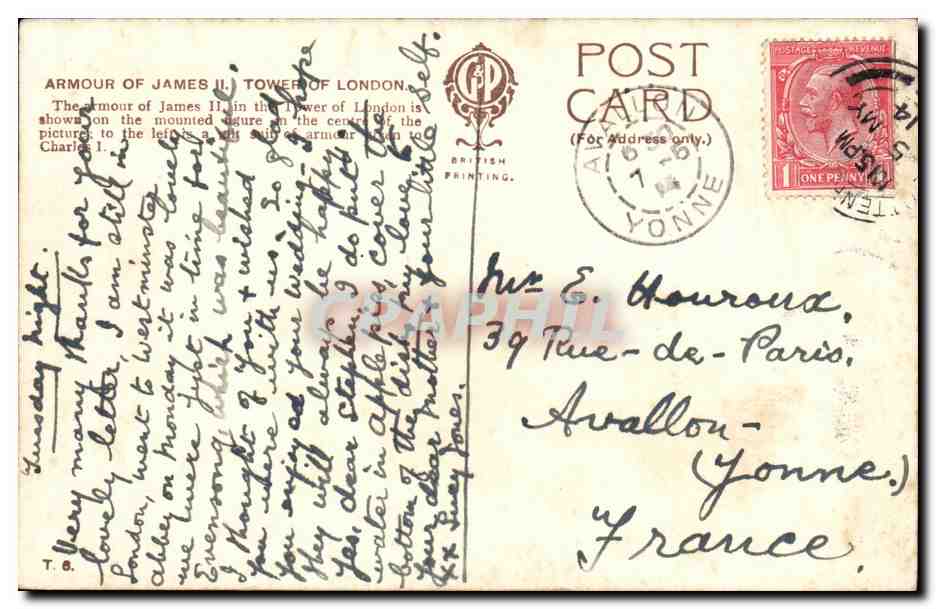 ARMOUR OF JAMES II. TOWER OF LONDON.
The armour of James II. in the Tower of London is
shown on the mounted figure in the centre of the
picture; to the left is a gilt suit of armour given to
Charles I.
C&P
BRITISH
PRINTING.
POST
CARD
(For Address only.)
AVALLON
YONNE
POSTAGE REVENUE
1 ONE PENNY 1
PM
5 MY
14
Tuesday night.
Very many thanks for your
lovely letter, I am still in
London, went to Westminster
abbey on Monday it was lovely
we were just in time for
Evensong which was beautiful.
I thought of you & wished
you were with us. So glad
you enjoyed your wedding - I hope
they will always be happy.
Yes, dear Stephie, I do put
water in apple pies cover the
bottom of the dish, my love to
your dear Mother & your little self.
xx Lucy Jones.
Mr E. Houroux,
39 Rue-de-Paris.
Avallon-
(Yonne.)
France.
T. 6.
CPAPHIL